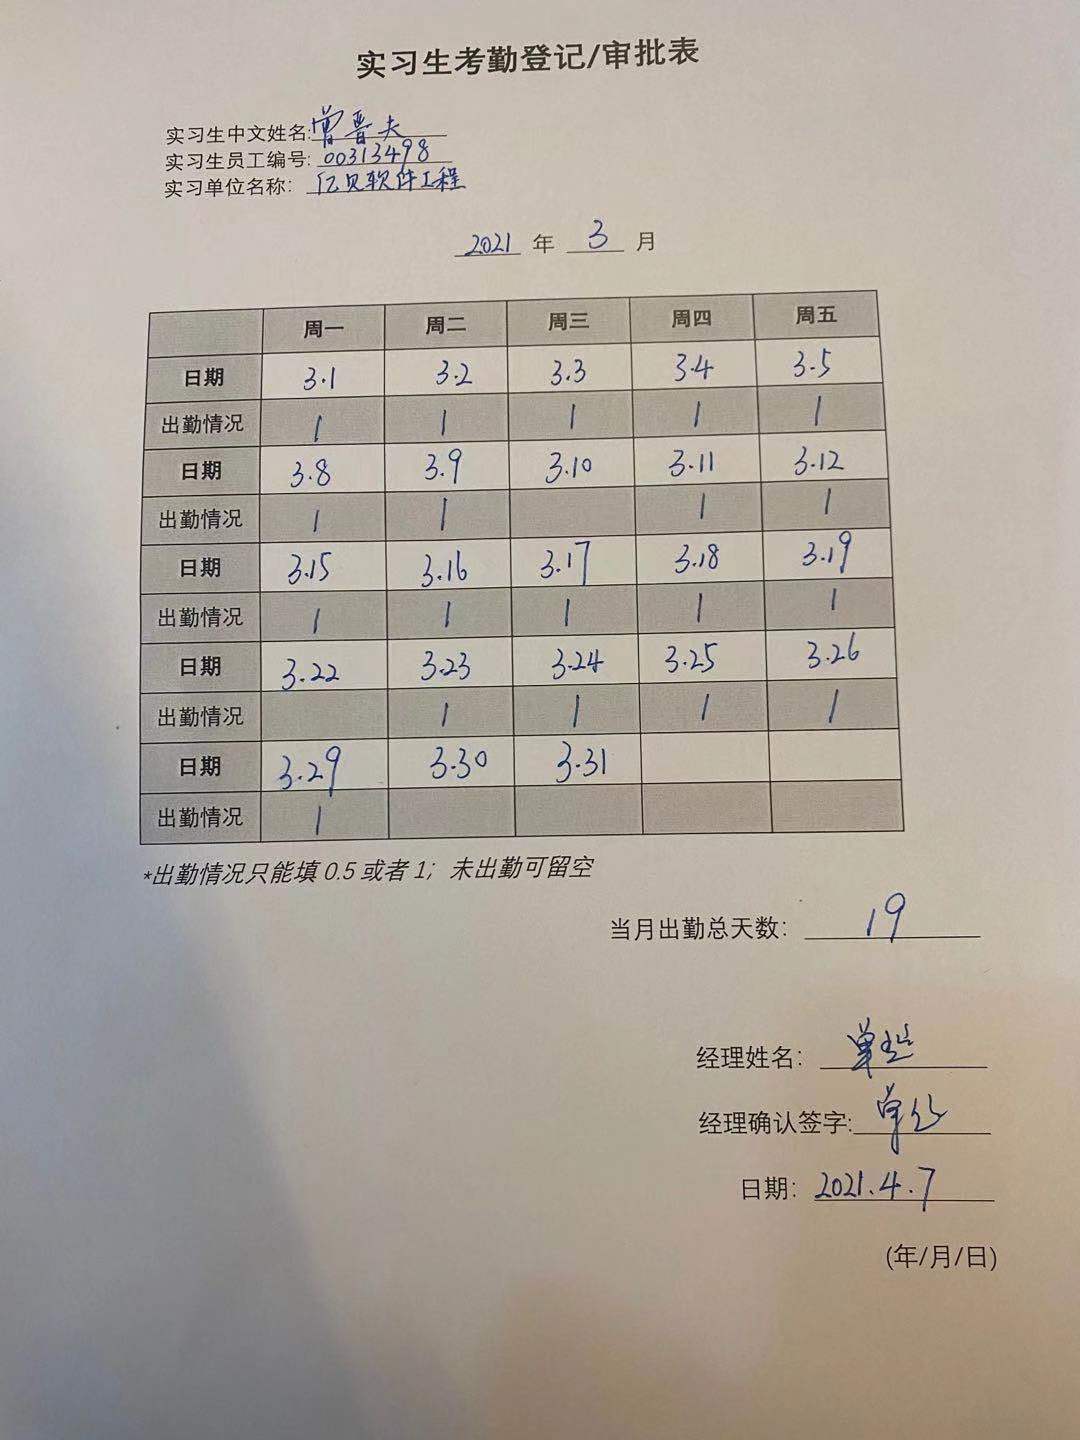 实习生考勤登记/审批表
实习生中文姓名: 曾晋夫
实习生员工编号: 00313498
实习单位名称: 亿贝软件工程
2021 年 3 月
周一 周二 周三 周四 周五
日期 3.1 3.2 3.3 3.4 3.5
出勤情况 1 1 1 1 1
日期 3.8 3.9 3.10 3.11 3.12
出勤情况 1 1 1 1
日期 3.15 3.16 3.17 3.18 3.19
出勤情况 1 1 1 1 1
日期 3.22 3.23 3.24 3.25 3.26
出勤情况 1 1 1 1
日期 3.29 3.30 3.31
出勤情况 1
*出勤情况只能填 0.5 或者 1；未出勤可留空
当月出勤总天数: 19
经理姓名: 单
经理确认签字: 单
日期: 2021.4.7
(年/月/日)